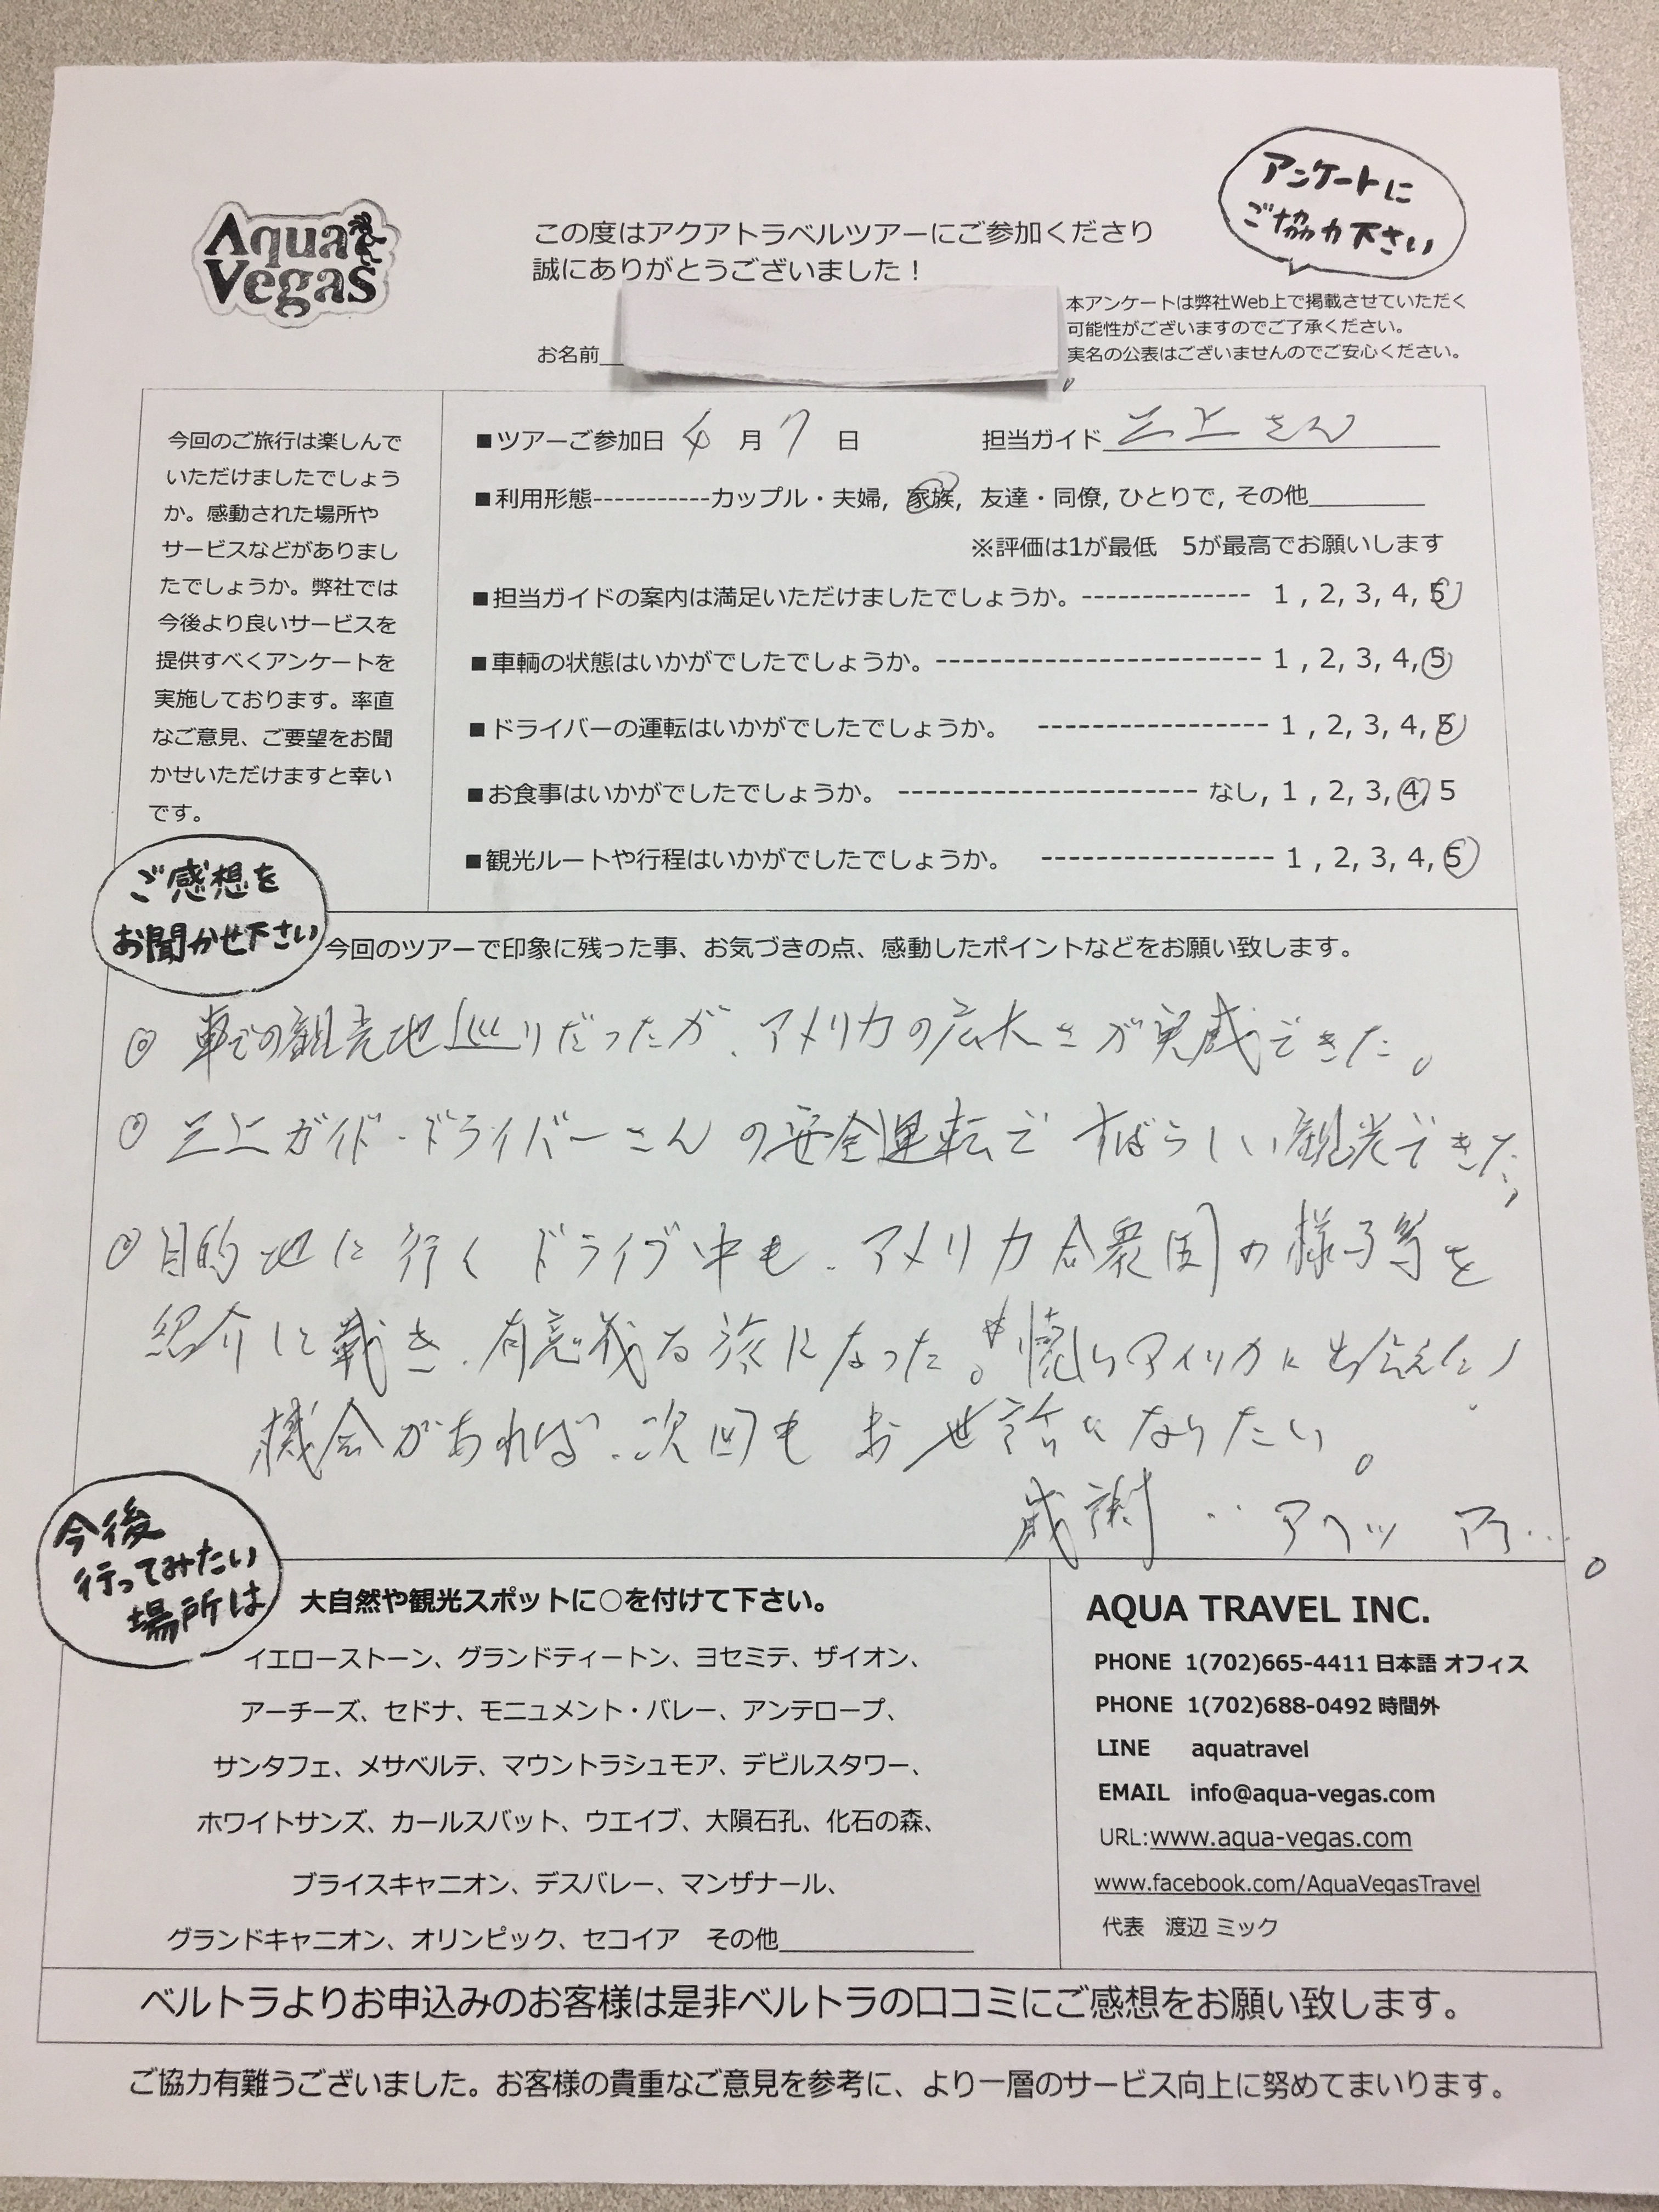 アンケートに
ご協力下さい
Aqua
Vegas
この度はアクアトラベルツアーにご参加くださり
誠にありがとうございました！
本アンケートは弊社Web上で掲載させていただく
可能性がございますのでご了承ください。
実名の公表はございませんのでご安心ください。
お名前
今回のご旅行は楽しんで
いただけましたでしょう
か。感動された場所や
サービスなどがありまし
たでしょうか。弊社では
今後より良いサービスを
提供すべくアンケートを
実施しております。率直
なご意見、ご要望をお聞
かせいただけますと幸い
です。
■ツアーご参加日 月 7 日 担当ガイド 三上さん
■利用形態-----------カップル・夫婦, 家族, 友達・同僚, ひとりで, その他
※評価は1が最低 5が最高でお願いします
■担当ガイドの案内は満足いただけましたでしょうか。-------------- 1 , 2, 3, 4, 5
■車輌の状態はいかがでしたでしょうか。--------------------------- 1 , 2, 3, 4, 5
■ドライバーの運転はいかがでしたでしょうか。 ------------------- 1 , 2, 3, 4, 5
■お食事はいかがでしたでしょうか。 ------------------------ なし, 1 , 2, 3, 4, 5
■観光ルートや行程はいかがでしたでしょうか。 ------------------- 1 , 2, 3, 4, 5
ご感想を
お聞かせ下さい
今回のツアーで印象に残った事、お気づきの点、感動したポイントなどをお願い致します。
◎ 車での観光地巡りだったが、アメリカの広大さが実感できた。
◎ 三上ガイド・ドライバーさんの安全運転ですばらしい観光できた。
◎ 目的地に行くドライブ中も、アメリカ合衆国の様子等を
紹介して戴き、有意義な旅になった。アメリカに出会えた。
機会があれば、次回もお世話になりたい。
感謝
今後
行ってみたい
場所は
大自然や観光スポットに○を付けて下さい。
イエローストーン、グランドティートン、ヨセミテ、ザイオン、
アーチーズ、セドナ、モニュメント・バレー、アンテロープ、
サンタフェ、メサベルテ、マウントラシュモア、デビルスタワー、
ホワイトサンズ、カールスバット、ウエイブ、大隕石孔、化石の森、
ブライスキャニオン、デスバレー、マンザナール、
グランドキャニオン、オリンピック、セコイア その他
AQUA TRAVEL INC.
PHONE 1(702)665-4411 日本語 オフィス
PHONE 1(702)688-0492 時間外
LINE aquatravel
EMAIL info@aqua-vegas.com
URL:www.aqua-vegas.com
www.facebook.com/AquaVegasTravel
代表 渡辺 ミック
ベルトラよりお申込みのお客様は是非ベルトラの口コミにご感想をお願い致します。
ご協力有難うございました。お客様の貴重なご意見を参考に、より一層のサービス向上に努めてまいります。